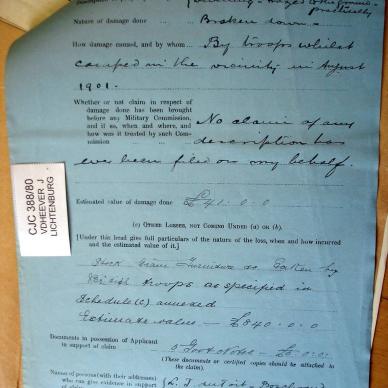 Nature of damage done ... Broken down.
How damage caused, and by whom ... By troops whilst
camped in the vicinity in August
1901.
Whether or not claim in respect of
damage done has been brought
before any Military Commission,
and if so, when and where, and
how was it treated by such Commission
No claim of any
description has
ever been filed on my behalf.
CJC 388/80
VDHEEVER J
LICHTENBURG
Estimated value of damage done £41.0.0
(c) OTHER LOSSES, NOT COMING UNDER (a) OR (b).
[Under this head give full particulars of the nature of the loss, when and how incurred
and the estimated value of it.]
Stock Grain Furniture &c taken by
British troops as specified in
Schedule (c) annexed
Estimate value — £840.0.0
Documents in possession of Applicant
in support of claim
(These documents or certified copies should be attached to
the claim).
Names of person(s) with their addresses)
who can give evidence in support